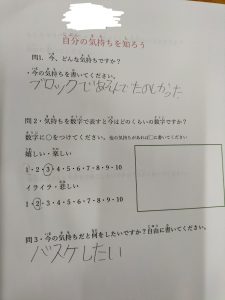 自分の気持ちを知ろう
問1. 今、どんな気持ちですか?
・今の気持ちを書いてください。
ブロックであそんでたのしかった
問2. 気持ちを数字で表すと今はどのくらいの数字ですか?
数字に○をつけてください。他の気持ちがあれば□に書いてください。
嬉しい・楽しい
1・2・3・4・5・6・7・8・9・10
イライラ・悲しい
1・2・3・4・5・6・7・8・9・10
問3. 今の気持ちだと何をしたいですか?自由に書いてください。
バスケしたい